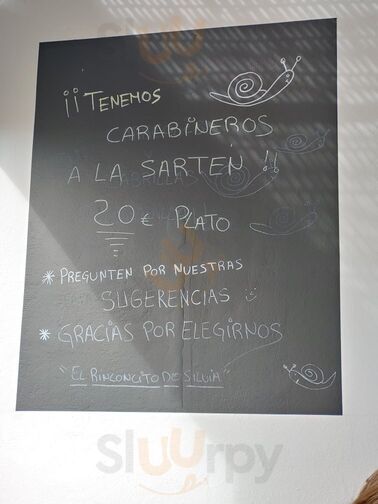 ¡¡TENEMOS
CARABINEROS
A LA SARTÉN!!
20 € PLATO
* PREGUNTEN POR NUESTRAS
SUGERENCIAS
* GRACIAS POR ELEGIRNOS
"EL RINCONCITO DE SILVIA"
Sluurpy